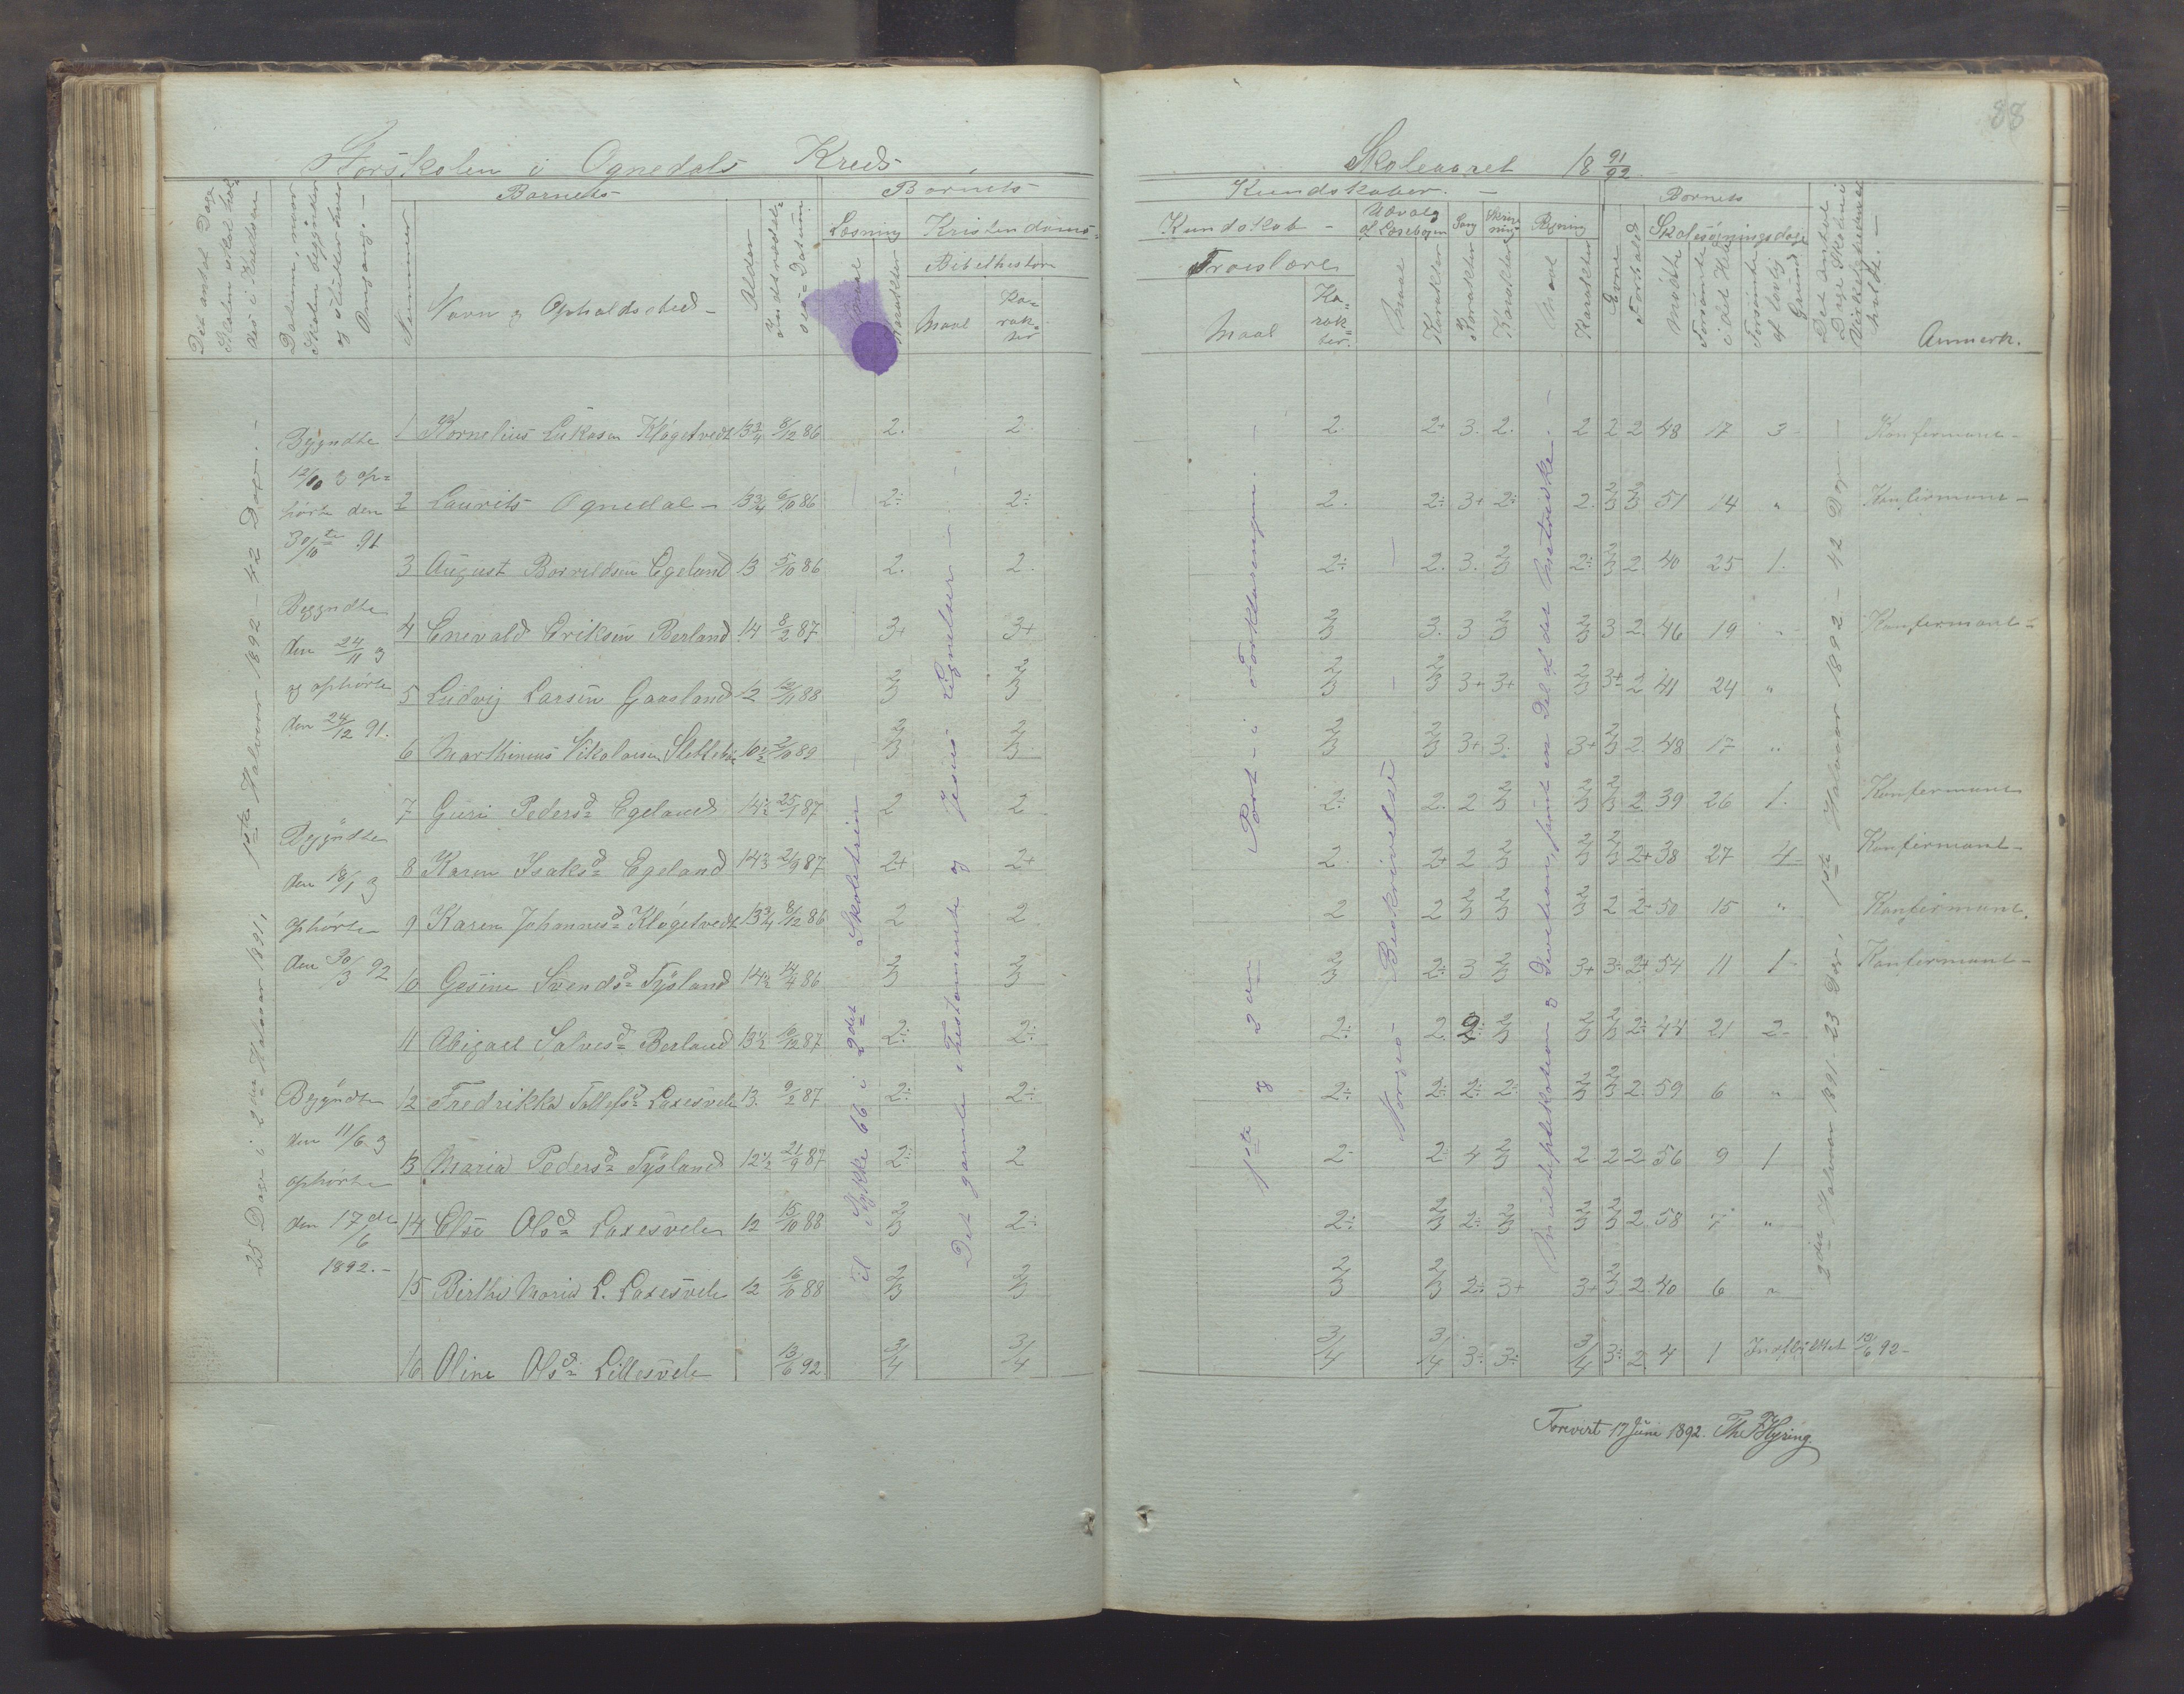 88
Forskolen i Ognedals Kreds
Skoleaaret 18 91/92
Det antal Dage Skolen skal holdes i Kredsen
Datum, naar Skolen begynder og slutter hver Omgang. -
Nummer
Barnets
Navn og Opholdssted -
Alder
Indtrædelses-Datum
Barnets
Læsning
Maal
Karakter
Kristendoms-
Bibelhistorie
Maal
Karakter
Kundskaber. -
Kundskab -
Troeslære
Maal
Karakter.
Udvalg af Læsebogen
Maal
Karakter
Sang
Karakter
Skrivning
Karakter
Regning
Maal
Karakter
Barnets
Evne
Forhold
Skolesøgningsdage
Mødte
Forsømte i det Hele
Forsømte af lovlig Grund
Det Antal Dage Skolen i Virkeligheden holdt. -
Anmærk.
25 Dage i 2det Halvaar 1891, 1ste Halvaar 1892 - 42 Dage. -
Begyndte
12/10 og op-
hørte den
30/10 te 91
Begyndte
den 24/11 og
og ophørte
den 24/12 91.
Begyndte
den 18/1 og
ophørte
den 30/3 92
Begyndte
den 11/6 og
ophørte
den 17de/6
1892. -
til Stykke 66 i 2det Skoletrin -
Det gamle Testamente og Jesus Lignelser -
1ste og 2den Part - i Forklaringen. -
Norges Beskrivelse
Multiplikation og Division, samt en Del af det Metriske. -
2det Halvaar 1891 - 23 Dage, 1ste Halvaar 1892 - 42 Dage -
1 Kornelius Lukasen Kløgetvedt 13 3/4 8/12 86 2. 2. 2. 2+ 3. 2. 2 2 2 48 17 3 - Konfirmant -
2 Laurits Ognedal - 13 3/4 6/10 86 2÷ 2÷ 2. 2÷ 3+ 2÷ 2. 2/3 3 51 14 " Konfirmant -
3 August Borreldsen Egeland 13 5/10 86 2. 2. 2÷ 2. 3. 2/3 2÷ 2/3 2 40 25 1.
4 Enevald Eriksen Berland 14 8/2 87 3+ 3+ 2/3 3. 3 2/3 2/3 3 2. 46 19 " Konfirmant -
5 Ludvig Larsen Gaasland 12 12/11 88 2/3 2/3 2/3 2/3 3+ 3+ 2/3 3+ 2 41 24 "
6 Marthinius Nikolaisen 10 1/2 2/10 89 2/3 2/3 2/3 2/3 3+ 3. 3+ 2/3 2. 48 17 "
7 Guri Pedersd Egeland 14 1/2 25/1 87 2 2 2÷ 2. 2 2/3 2/3 2/3 2. 39 26 1. Konfirmant
8 Karen Isaksd Egeland 14 3/4 2/9 87 2+ 2+ 2. 2+ 2 2/3 2/3 2/3 2+ 38 27 4 - Konfirmant -
9 Karen Johannesd Kløgetvedt 13 3/4 8/12 86 2 2 2 2 2/3 2/3 2/3 2 2÷ 50 15 " Konfirmant.
10 Gesine Svendsd Tysland 14 1/2 14/4 86 2/3 2/3 2/3 2÷ 3 2/3 3+ 3÷ 2+ 54 11 1 - Konfirmant -
11 Abigael Salvesd Berland 13 1/2 16/12 87 2÷ 2÷ 2÷ 2. 2÷ 2/3 2/3 2/3 2÷ 44 21 2 -
12 Fredrikke Tollefsd Laxesvele 13. 9/2 87 2÷ 2÷ 2÷ 2÷ 2÷ 2÷ 2/3 2/3 2. 59 6 "
13 Maria Pedersd Tysland 12 1/2 21/9 87 2÷ 2 2 - 2 4 2/3 2 2 2 56 9 1
14 Else Olsd Laxesvele 12 15/10 88 2/3 2÷ 2÷ 2/3 2÷ 2/3 2/3 2/3 2 58 7 "
15 Birthe Maria L. Laxesvele 12 16/10 88 2/3 2/3 2/3 2/3 2÷ 3+ 3+ 2/3 2. 40 6 "
16 Oline Olsd Lillesvele 13/6 92 3/4 3/4 3/4 3/4 3÷ 3÷ 3/4 3÷ 2 4 1 Indflyttet 13/6 92 -
Forevist 17 Juni 1892. Th. Hyring